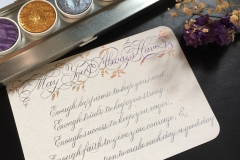 May You Always Have
Enough happiness to keep you sweet,
Enough trials to keep you strong
Enough success to keep you eager,
Enough faith to give you courage, &
to make each day a good day